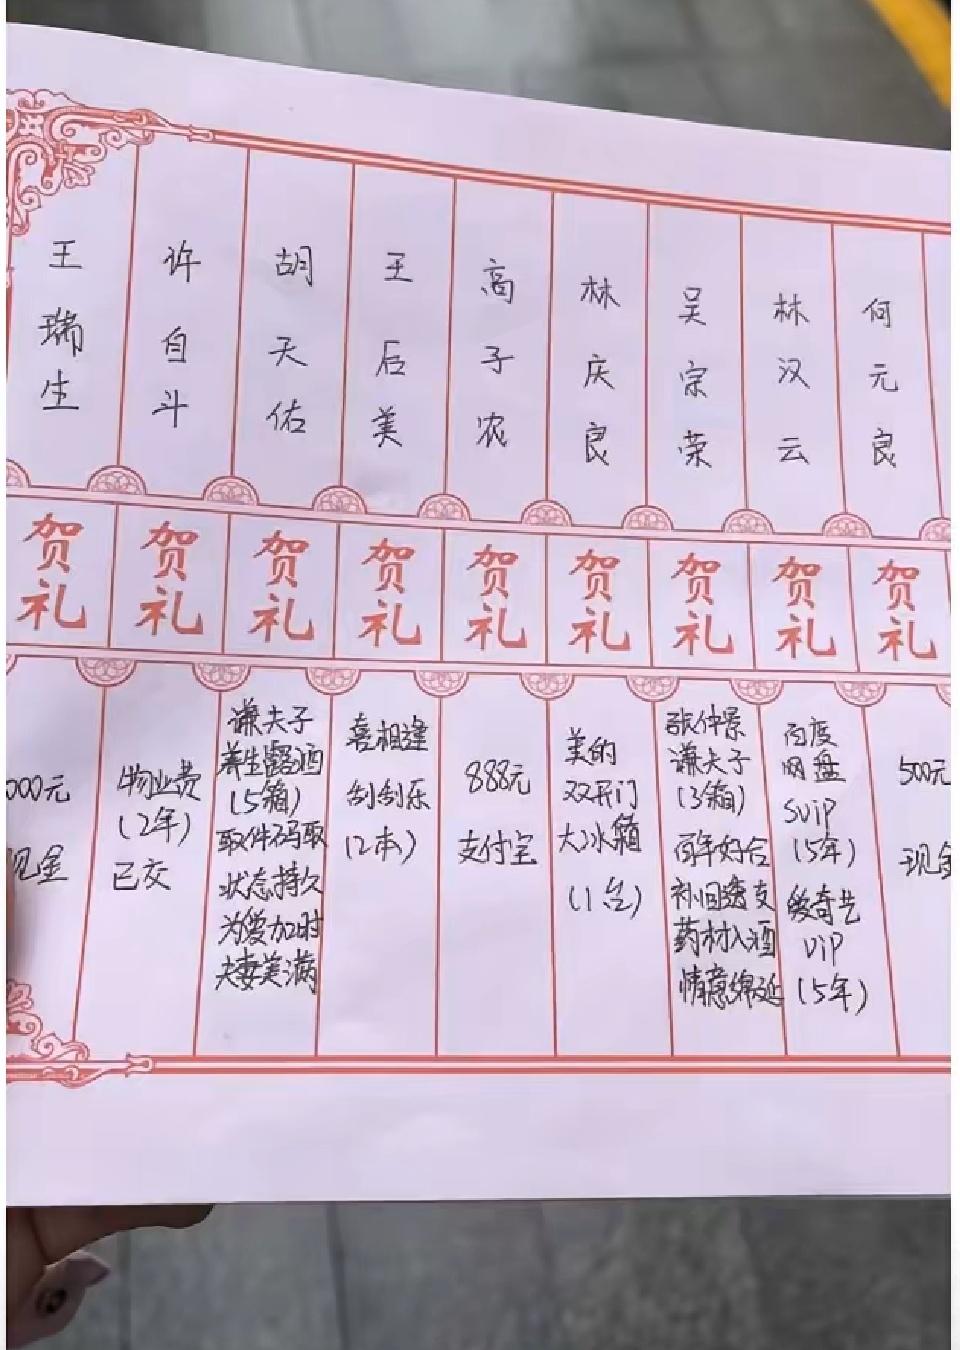 王瑞生
许自斗
胡天佑
王后美
高子农
林庆良
吴宗荣
林汉云
何元良
贺礼
贺礼
贺礼
贺礼
贺礼
贺礼
贺礼
贺礼
贺礼
000元
现金
物业费
(2年)
已交
谦夫子
养生露酒
(5箱)
取件码取
状态持久
为爱加时
夫妻美满
喜相逢
刮刮乐
(2本)
888元
支付宝
美的
双开门
大冰箱
(1台)
张仲景
谦夫子
(3箱)
百年好合
补回透支
药材入酒
情意绵延
百度
网盘
SVIP
(5年)
爱奇艺
VIP
(5年)
500元
现金